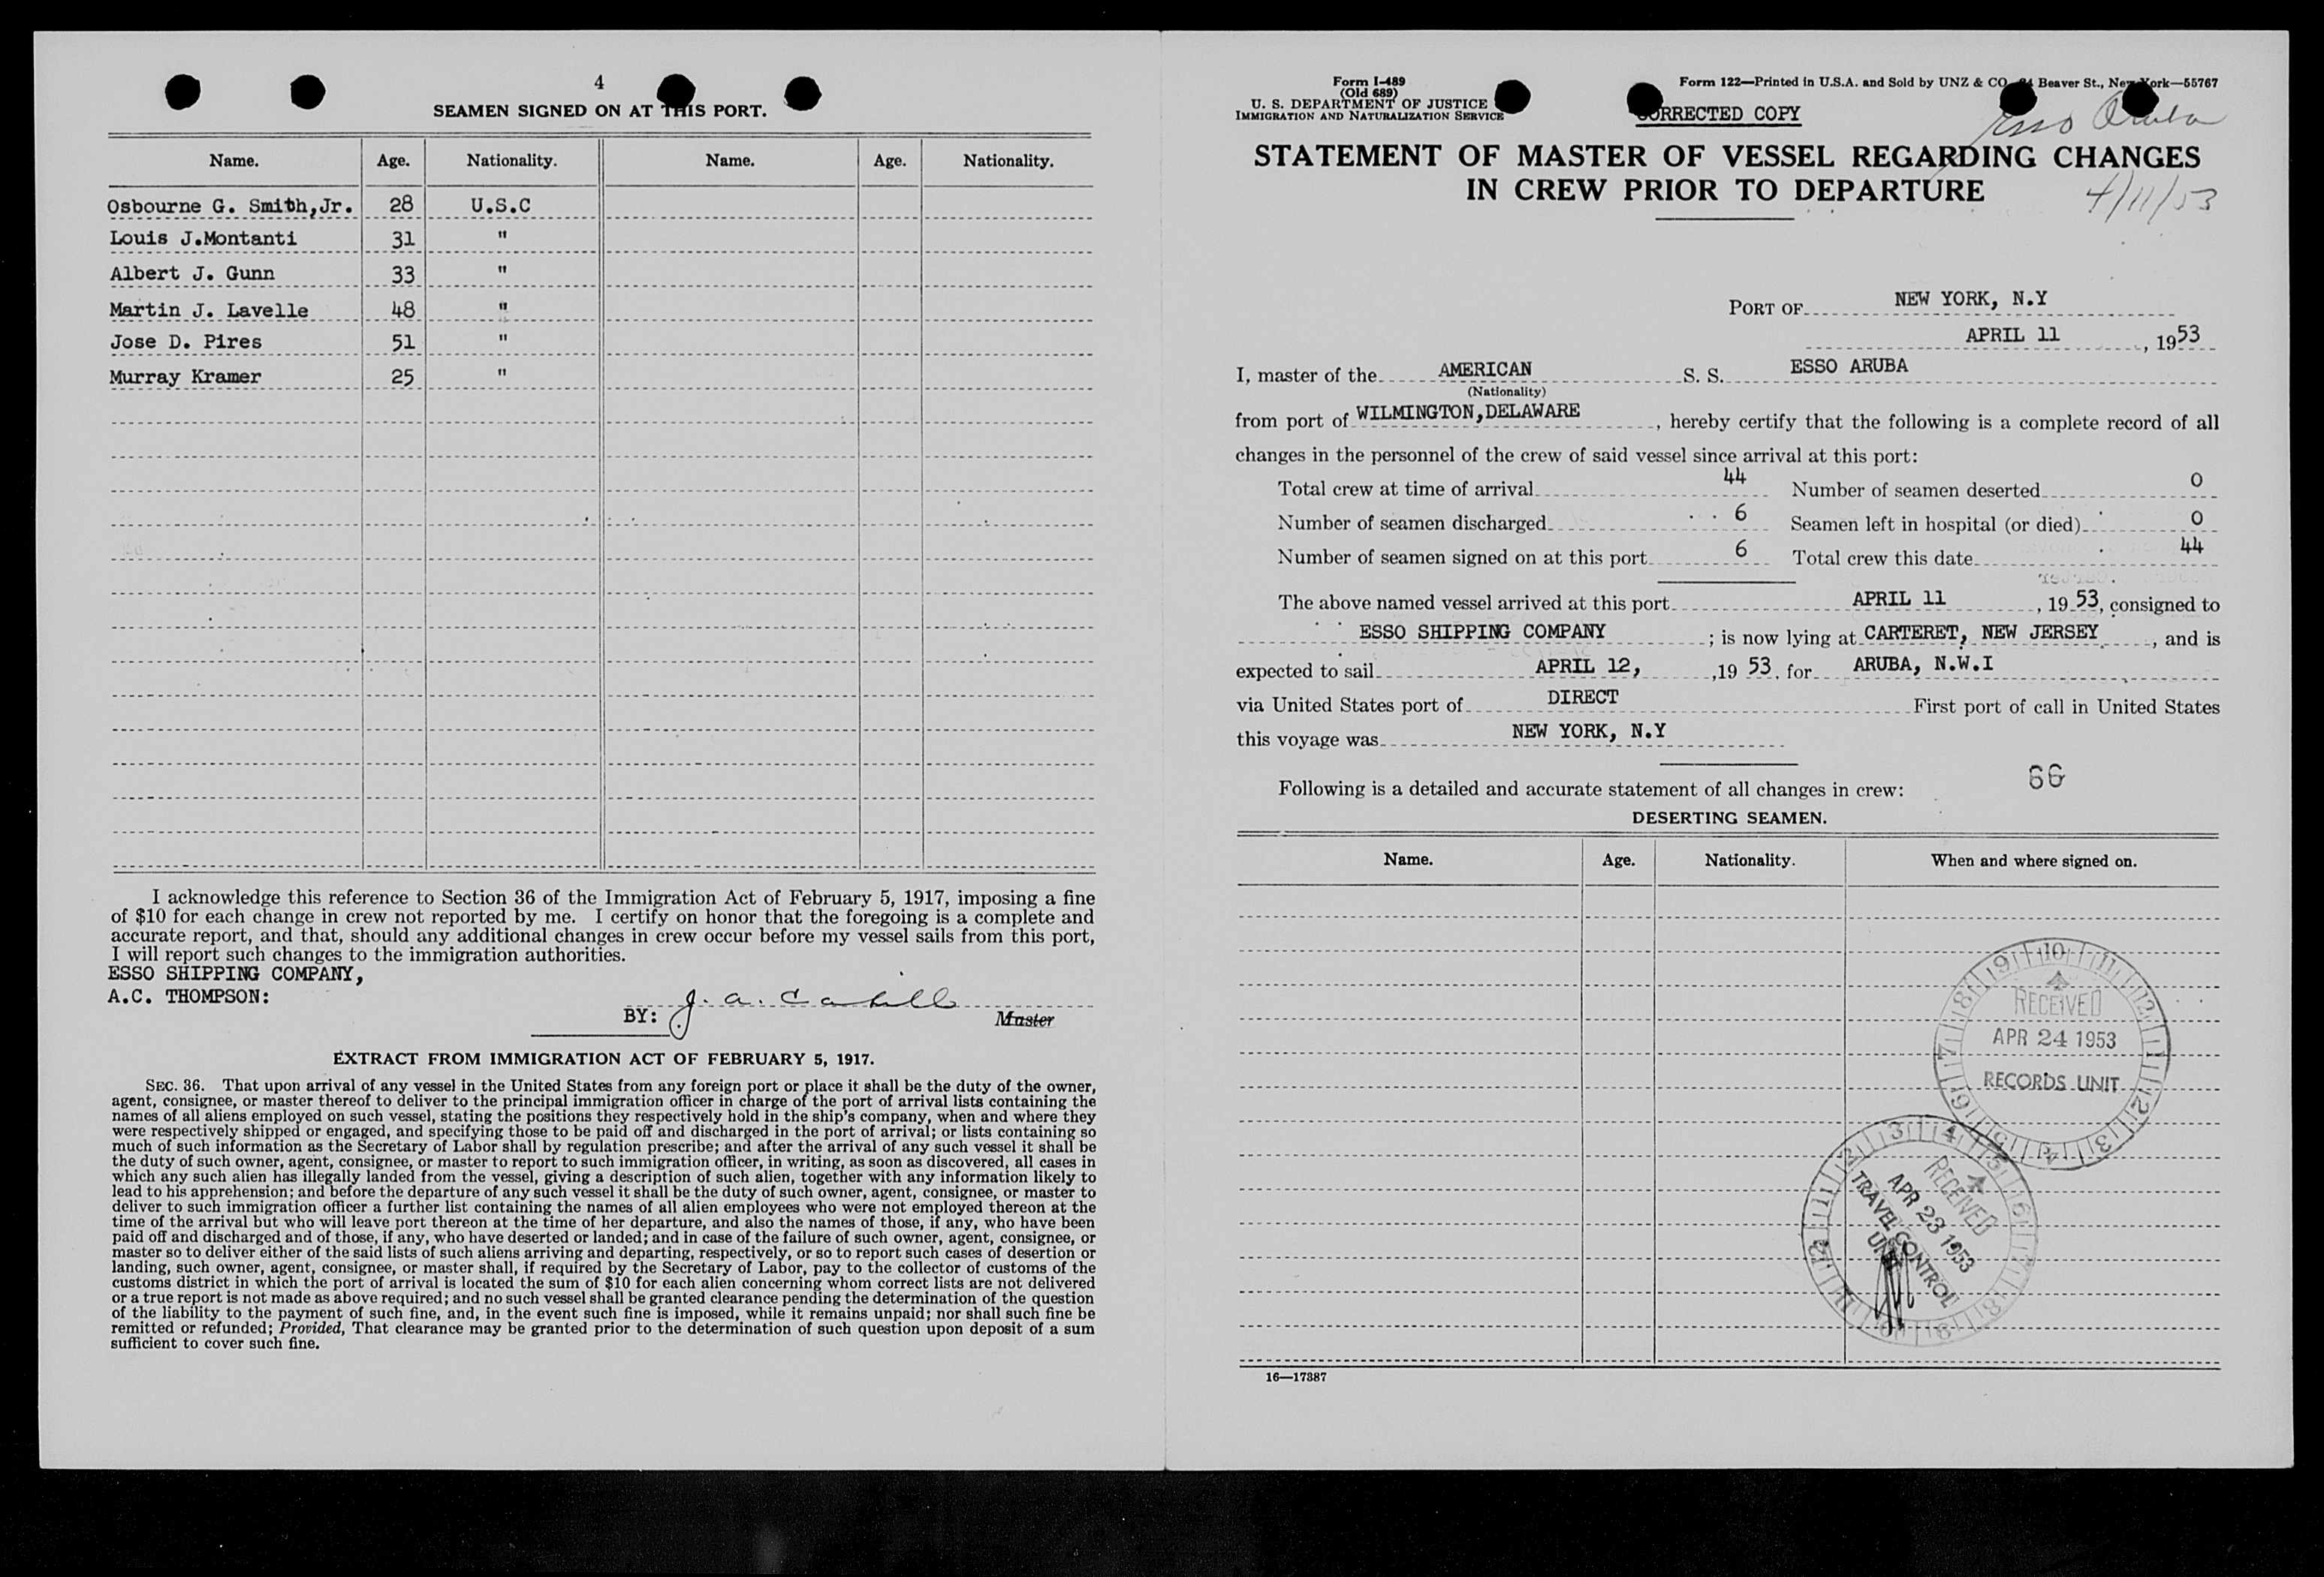 4
SEAMEN SIGNED ON AT THIS PORT.
Name. Age. Nationality. Name. Age. Nationality.
Osbourne G. Smith,Jr. 28 U.S.C
Louis J.Montanti 31 "
Albert J. Gunn 33 "
Martin J. Lavelle 48 "
Jose D. Pires 51 "
Murray Kramer 25 "
I acknowledge this reference to Section 36 of the Immigration Act of February 5, 1917, imposing a fine
of $10 for each change in crew not reported by me. I certify on honor that the foregoing is a complete and
accurate report, and that, should any additional changes in crew occur before my vessel sails from this port,
I will report such changes to the immigration authorities.
ESSO SHIPPING COMPANY,
A.C. THOMPSON:
BY: J. A. Cahill
Master
EXTRACT FROM IMMIGRATION ACT OF FEBRUARY 5, 1917.
SEC. 36. That upon arrival of any vessel in the United States from any foreign port or place it shall be the duty of the owner,
agent, consignee, or master thereof to deliver to the principal immigration officer in charge of the port of arrival lists containing the
names of all aliens employed on such vessel, stating the positions they respectively hold in the ship's company, when and where they
were respectively shipped or engaged, and specifying those to be paid off and discharged in the port of arrival; or lists containing so
much of such information as the Secretary of Labor shall by regulation prescribe; and after the arrival of any such vessel it shall be
the duty of such owner, agent, consignee, or master to report to such immigration officer, in writing, as soon as discovered, all cases in
which any such alien has illegally landed from the vessel, giving a description of such alien, together with any information likely to
lead to his apprehension; and before the departure of any such vessel it shall be the duty of such owner, agent, consignee, or master to
deliver to such immigration officer a further list containing the names of all alien employees who were not employed thereon at the
time of the arrival but who will leave port thereon at the time of her departure, and also the names of those, if any, who have been
paid off and discharged and of those, if any, who have deserted or landed; and in case of the failure of such owner, agent, consignee, or
master so to deliver either of the said lists of such aliens arriving and departing, respectively, or so to report such cases of desertion or
landing, such owner, agent, consignee, or master shall, if required by the Secretary of Labor, pay to the collector of customs of the
customs district in which the port of arrival is located the sum of $10 for each alien concerning whom correct lists are not delivered
or a true report is not made as above required; and no such vessel shall be granted clearance pending the determination of the question
of the liability to the payment of such fine, and, in the event such fine is imposed, while it remains unpaid; nor shall such fine be
remitted or refunded; Provided, That clearance may be granted prior to the determination of such question upon deposit of a sum
sufficient to cover such fine.
Form I-489
(Old 689)
U. S. DEPARTMENT OF JUSTICE
IMMIGRATION AND NATURALIZATION SERVICE
Form 122—Printed in U.S.A. and Sold by UNZ & CO. Beaver St., New York—55767
CORRECTED COPY
Esso Aruba
STATEMENT OF MASTER OF VESSEL REGARDING CHANGES
IN CREW PRIOR TO DEPARTURE
4/11/53
PORT OF NEW YORK, N.Y
APRIL 11, 1953
I, master of the AMERICAN S. S. ESSO ARUBA
(Nationality)
from port of WILMINGTON,DELAWARE, hereby certify that the following is a complete record of all
changes in the personnel of the crew of said vessel since arrival at this port:
Total crew at time of arrival 44 Number of seamen deserted 0
Number of seamen discharged 6 Seamen left in hospital (or died) 0
Number of seamen signed on at this port 6 Total crew this date 44
The above named vessel arrived at this port APRIL 11, 1953, consigned to
ESSO SHIPPING COMPANY; is now lying at CARTERET, NEW JERSEY, and is
expected to sail APRIL 12, ,1953. for ARUBA, N.W.I
via United States port of DIRECT First port of call in United States
this voyage was NEW YORK, N.Y
66
Following is a detailed and accurate statement of all changes in crew:
DESERTING SEAMEN.
Name. Age. Nationality. When and where signed on.
RECEIVED
APR 24 1953
RECORDS UNIT
RECEIVED
APR 23 1953
TRAVEL CONTROL
UNIT
16—17387